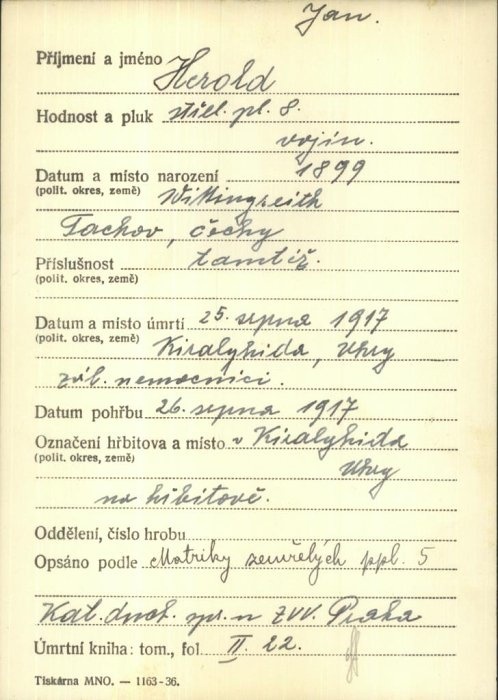 Jan.
Příjmení a jméno Herold
Hodnost a pluk střel. pl. 8.
vojín.
Datum a místo narození 1899
(polit. okres, země) Wittingreith
Tachov, čechy
Příslušnost tamtéž.
(polit. okres, země)
Datum a místo úmrtí 25. srpna 1917
(polit. okres, země) Kiralyhida, Uhry
zál. nemocnici.
Datum pohřbu 26. srpna 1917
Označení hřbitova a místo v Kiralyhida
(polit. okres, země) Uhry
na hřbitově.
Oddělení, číslo hrobu
Opsáno podle Matriky zemřelých ppl. 5
Kat. duch. spr. n ZVV. Praha
Úmrtní kniha: tom., fol. II. 22.
Tiskárna MNO. — 1163-36.